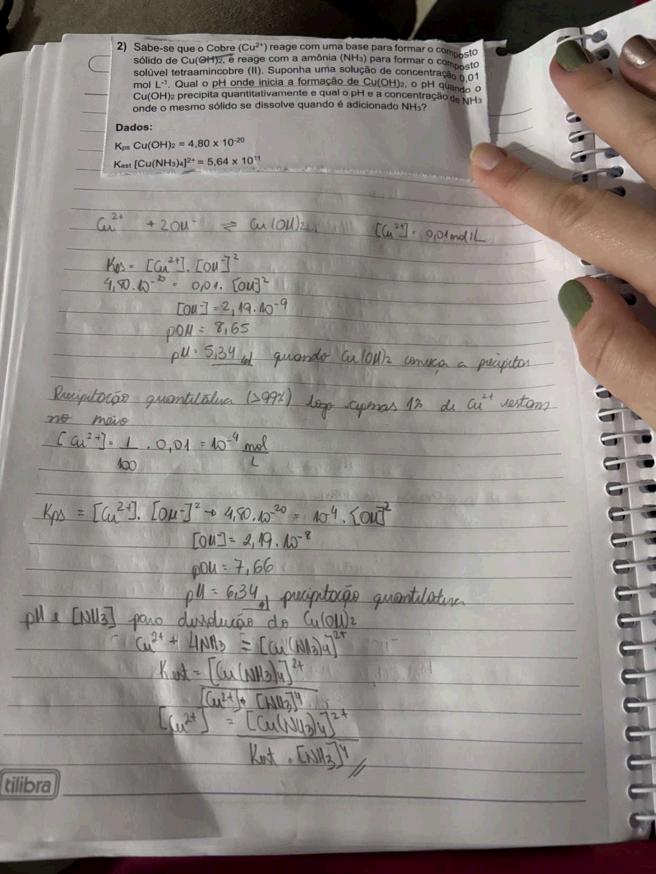 2) Sabe-se que o Cobre (Cu²⁺) reage com uma base para formar o composto
sólido de Cu(OH)₂, e reage com a amônia (NH₃) para formar o composto
solúvel tetraamincobre (II). Suponha uma solução de concentração 0,01
mol L⁻¹. Qual o pH onde inicia a formação de Cu(OH)₂, o pH quando o
Cu(OH)₂ precipita quantitativamente e qual o pH e a concentração de NH₃
onde o mesmo sólido se dissolve quando é adicionado NH₃?
Dados:
Kps Cu(OH)₂ = 4,80 x 10⁻²⁰
Kest [Cu(NH₃)₄]²⁺ = 5,64 x 10¹¹
Cu²⁺ + 2OH⁻ ⇌ Cu(OH)₂ [Cu²⁺] = 0,01 mol/L
Kps = [Cu²⁺] . [OH⁻]²
4,80.10⁻²⁰ = 0,01 . [OH⁻]²
[OH⁻] = 2,19.10⁻⁹
pOH = 8,65
pH = 5,34 quando Cu(OH)₂ começa a precipitar
Precipitação quantitativa (>99%) logo apenas 1% de Cu²⁺ restam
no meio
[Cu²⁺] = 1/100 . 0,01 = 10⁻⁴ mol/L
Kps = [Cu²⁺] . [OH⁻]² → 4,80.10⁻²⁰ = 10⁻⁴ . [OH]²
[OH⁻] = 2,19.10⁻⁸
pOH = 7,66
pH = 6,34 precipitação quantitativa
pH e [NH₃] para dissolução do Cu(OH)₂
Cu²⁺ + 4NH₃ ⇌ [Cu(NH₃)₄]²⁺
Kest = [Cu(NH₃)₄]²⁺
[Cu²⁺] + [NH₃]⁴
[Cu²⁺] = [Cu(NH₃)₄]²⁺
Kest . [NH₃]⁴
tilibra